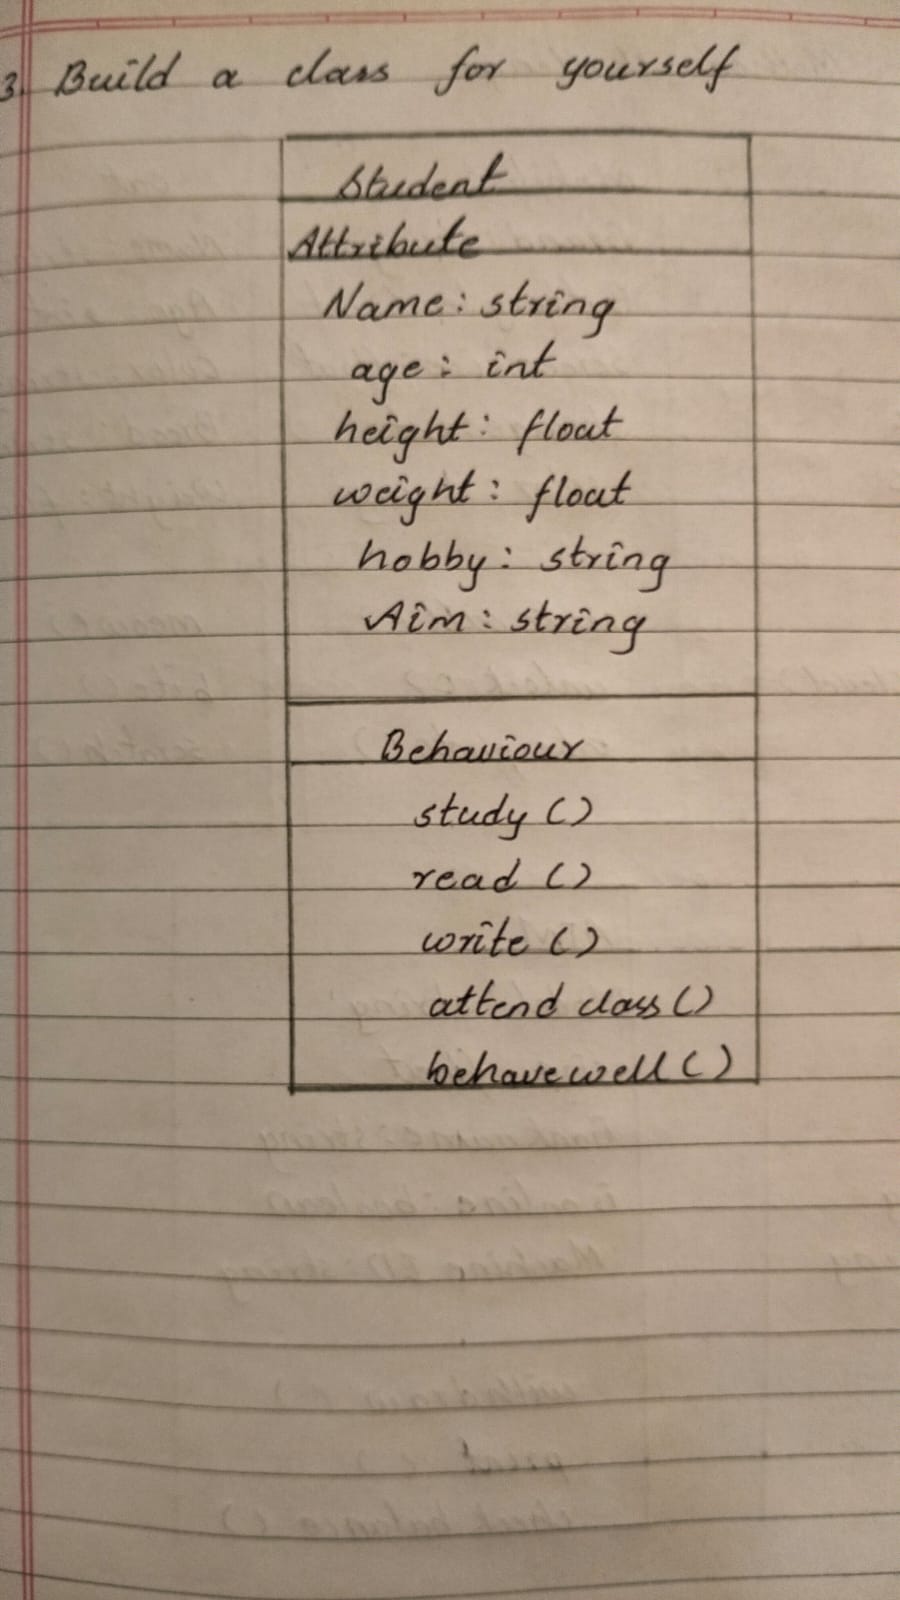 3. Build a class for yourself
Student
Attribute
Name: string
age: int
height: float
weight: float
hobby: string
Aim: string
Behaviour
study ()
read ()
write ()
attend class ()
behave well ()